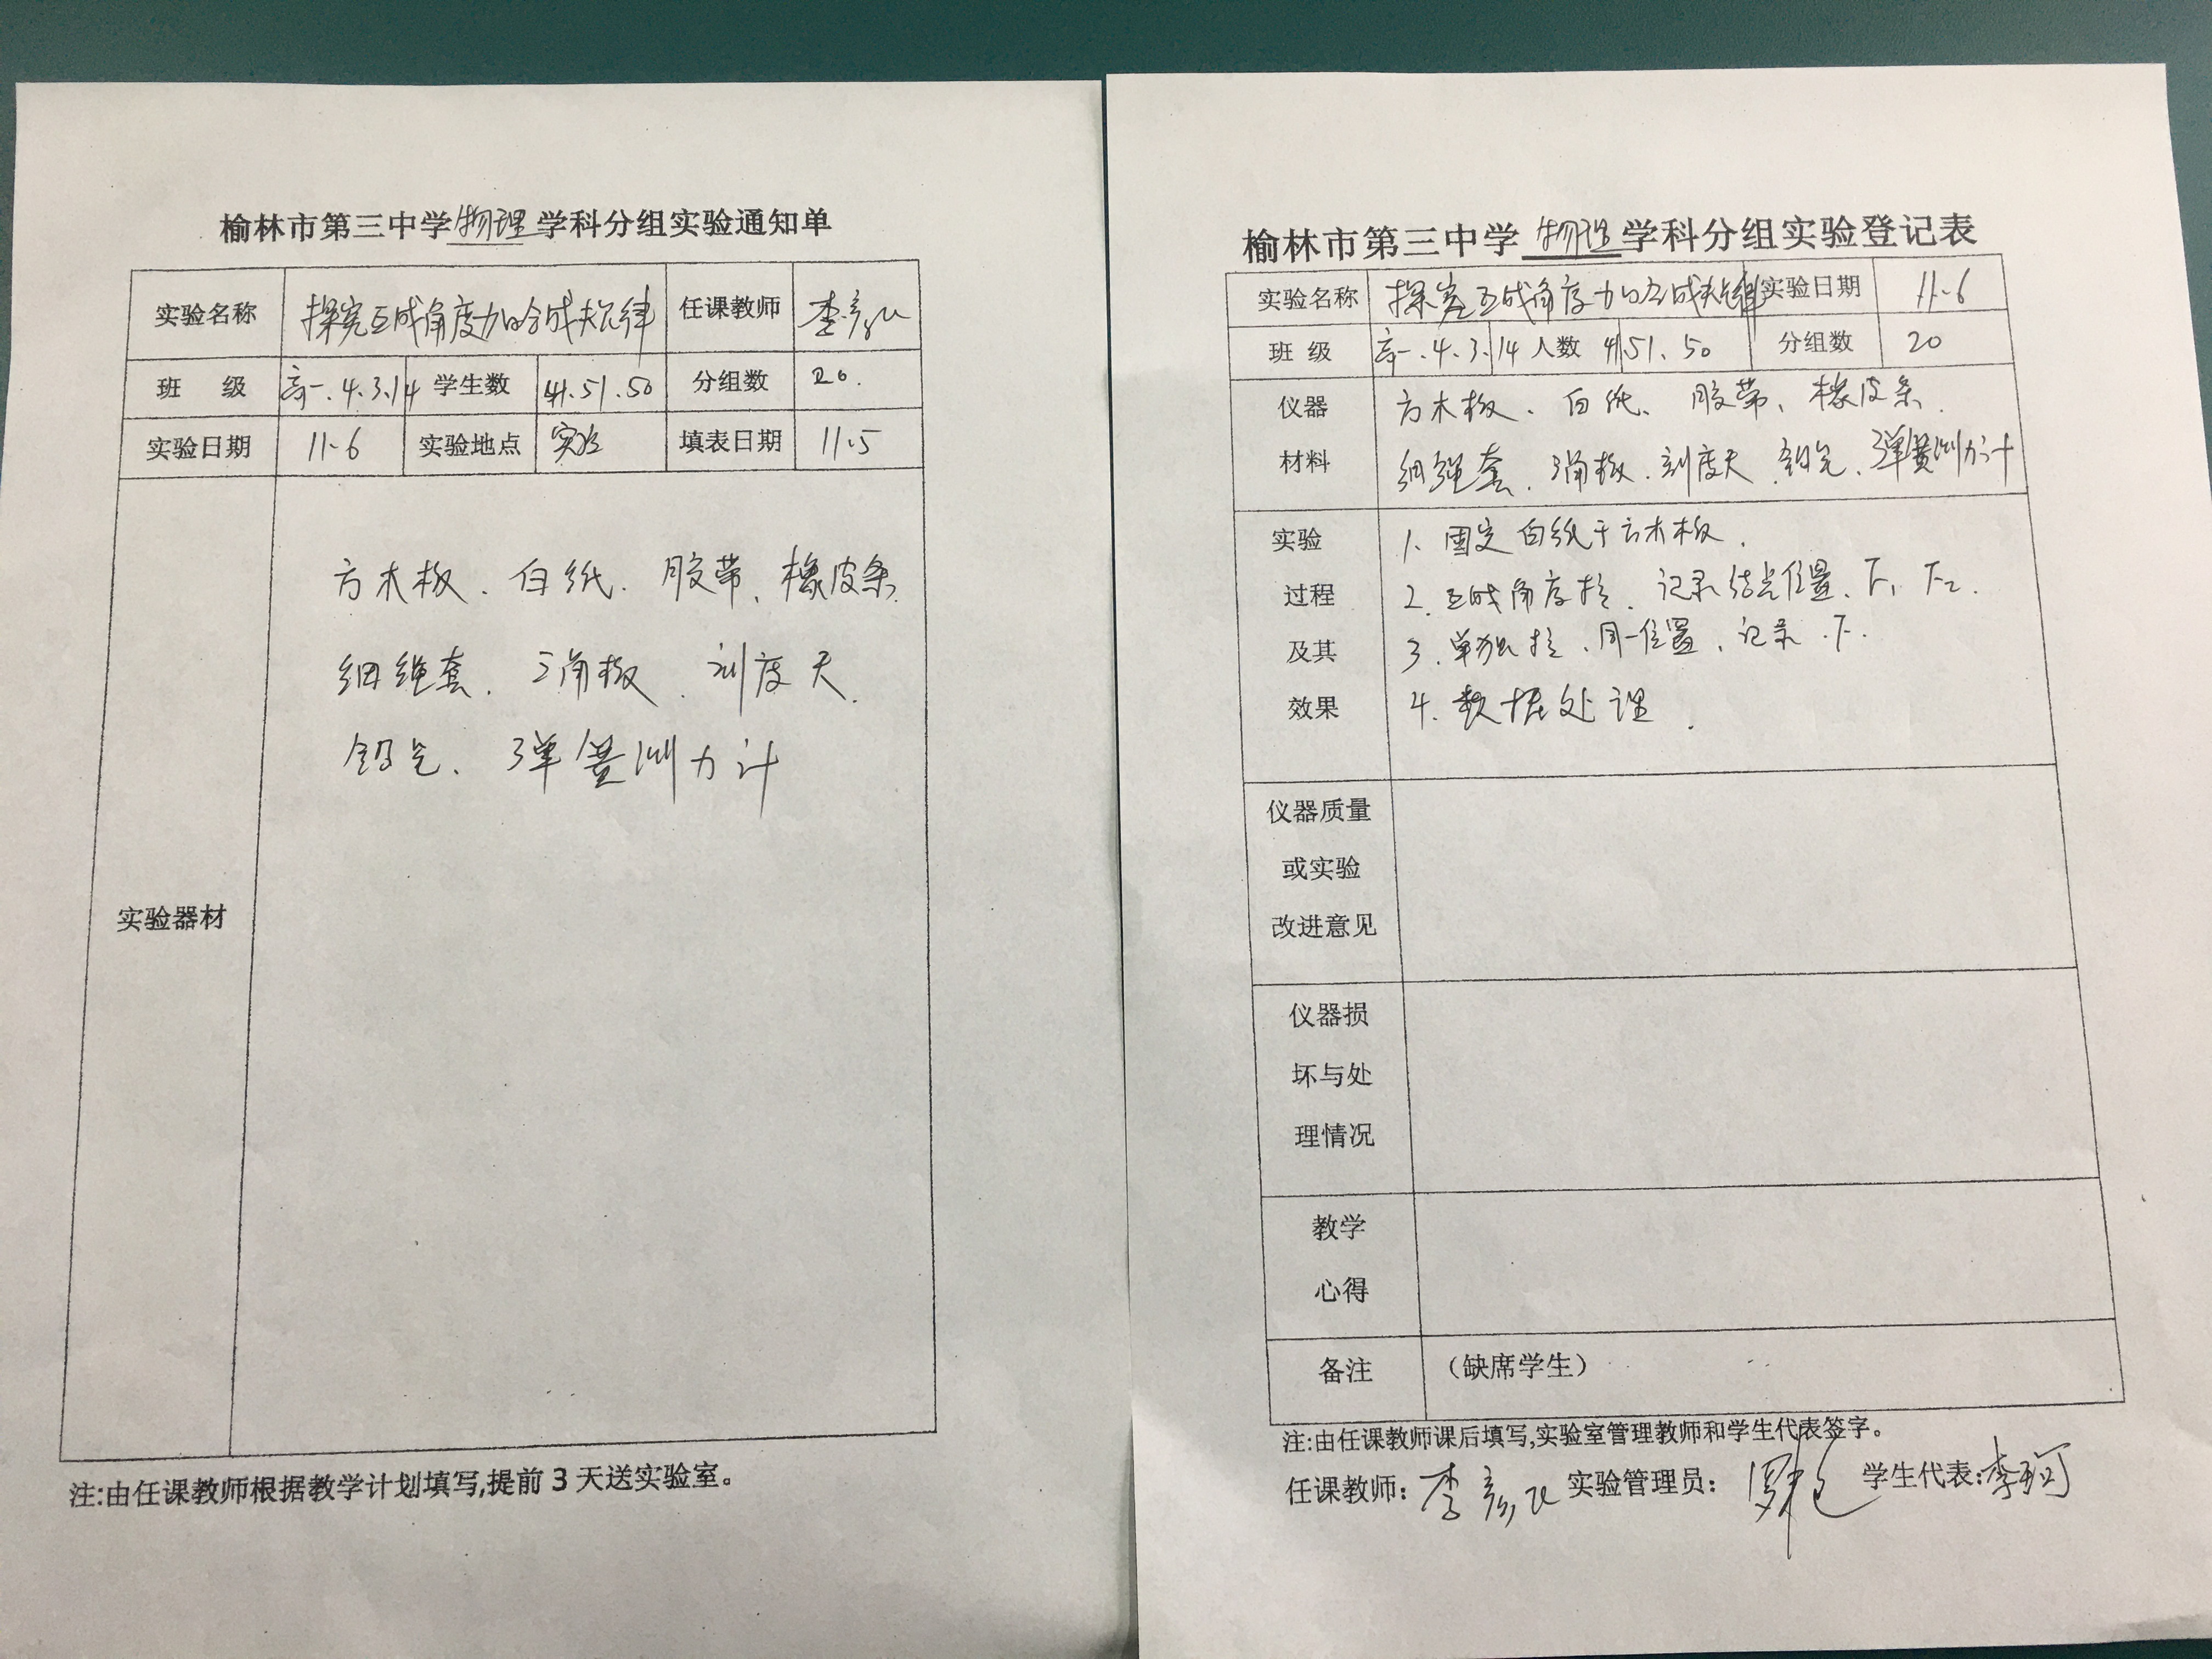 榆林市第三中学物理学科分组实验通知单
实验名称 探究互成角度力的合成规律 任课教师 李彦
班 级 高一.4.3.14 学生数 41.51.50 分组数 20.
实验日期 11-6 实验地点 实验 填表日期 11.5
实验器材
方木板、白纙、胶带、橡皮条
细绳套、三角板、刻度尺
铅笔、弹簧测力计
注:由任课教师根据教学计划填写,提前3天送实验室。
榆林市第三中学物理学科分组实验登记表
实验名称 探究互成角度力的合成规律 实验日期 11-6
班 级 高一.4.3.14 人数 41.51.50 分组数 20
仪器 方木板、白纸、胶带、橡皮条.
材料 细绳套、三角板.刻度尺、铅笔、弹簧测力计
实验 1、固定白纸于方木板.
过程 2.互成角度拉、记录结点位置、F1 F2.
及其 3.单独拉、同一位置、记录.F.
效果 4.数据处理.
仪器质量
或实验
改进意见
仪器损
坏与处
理情况
教学
心得
备注 （缺席学生）
注:由任课教师课后填写,实验室管理教师和学生代表签字。
任课教师: 李彦 实验管理员: 学生代表:李珂